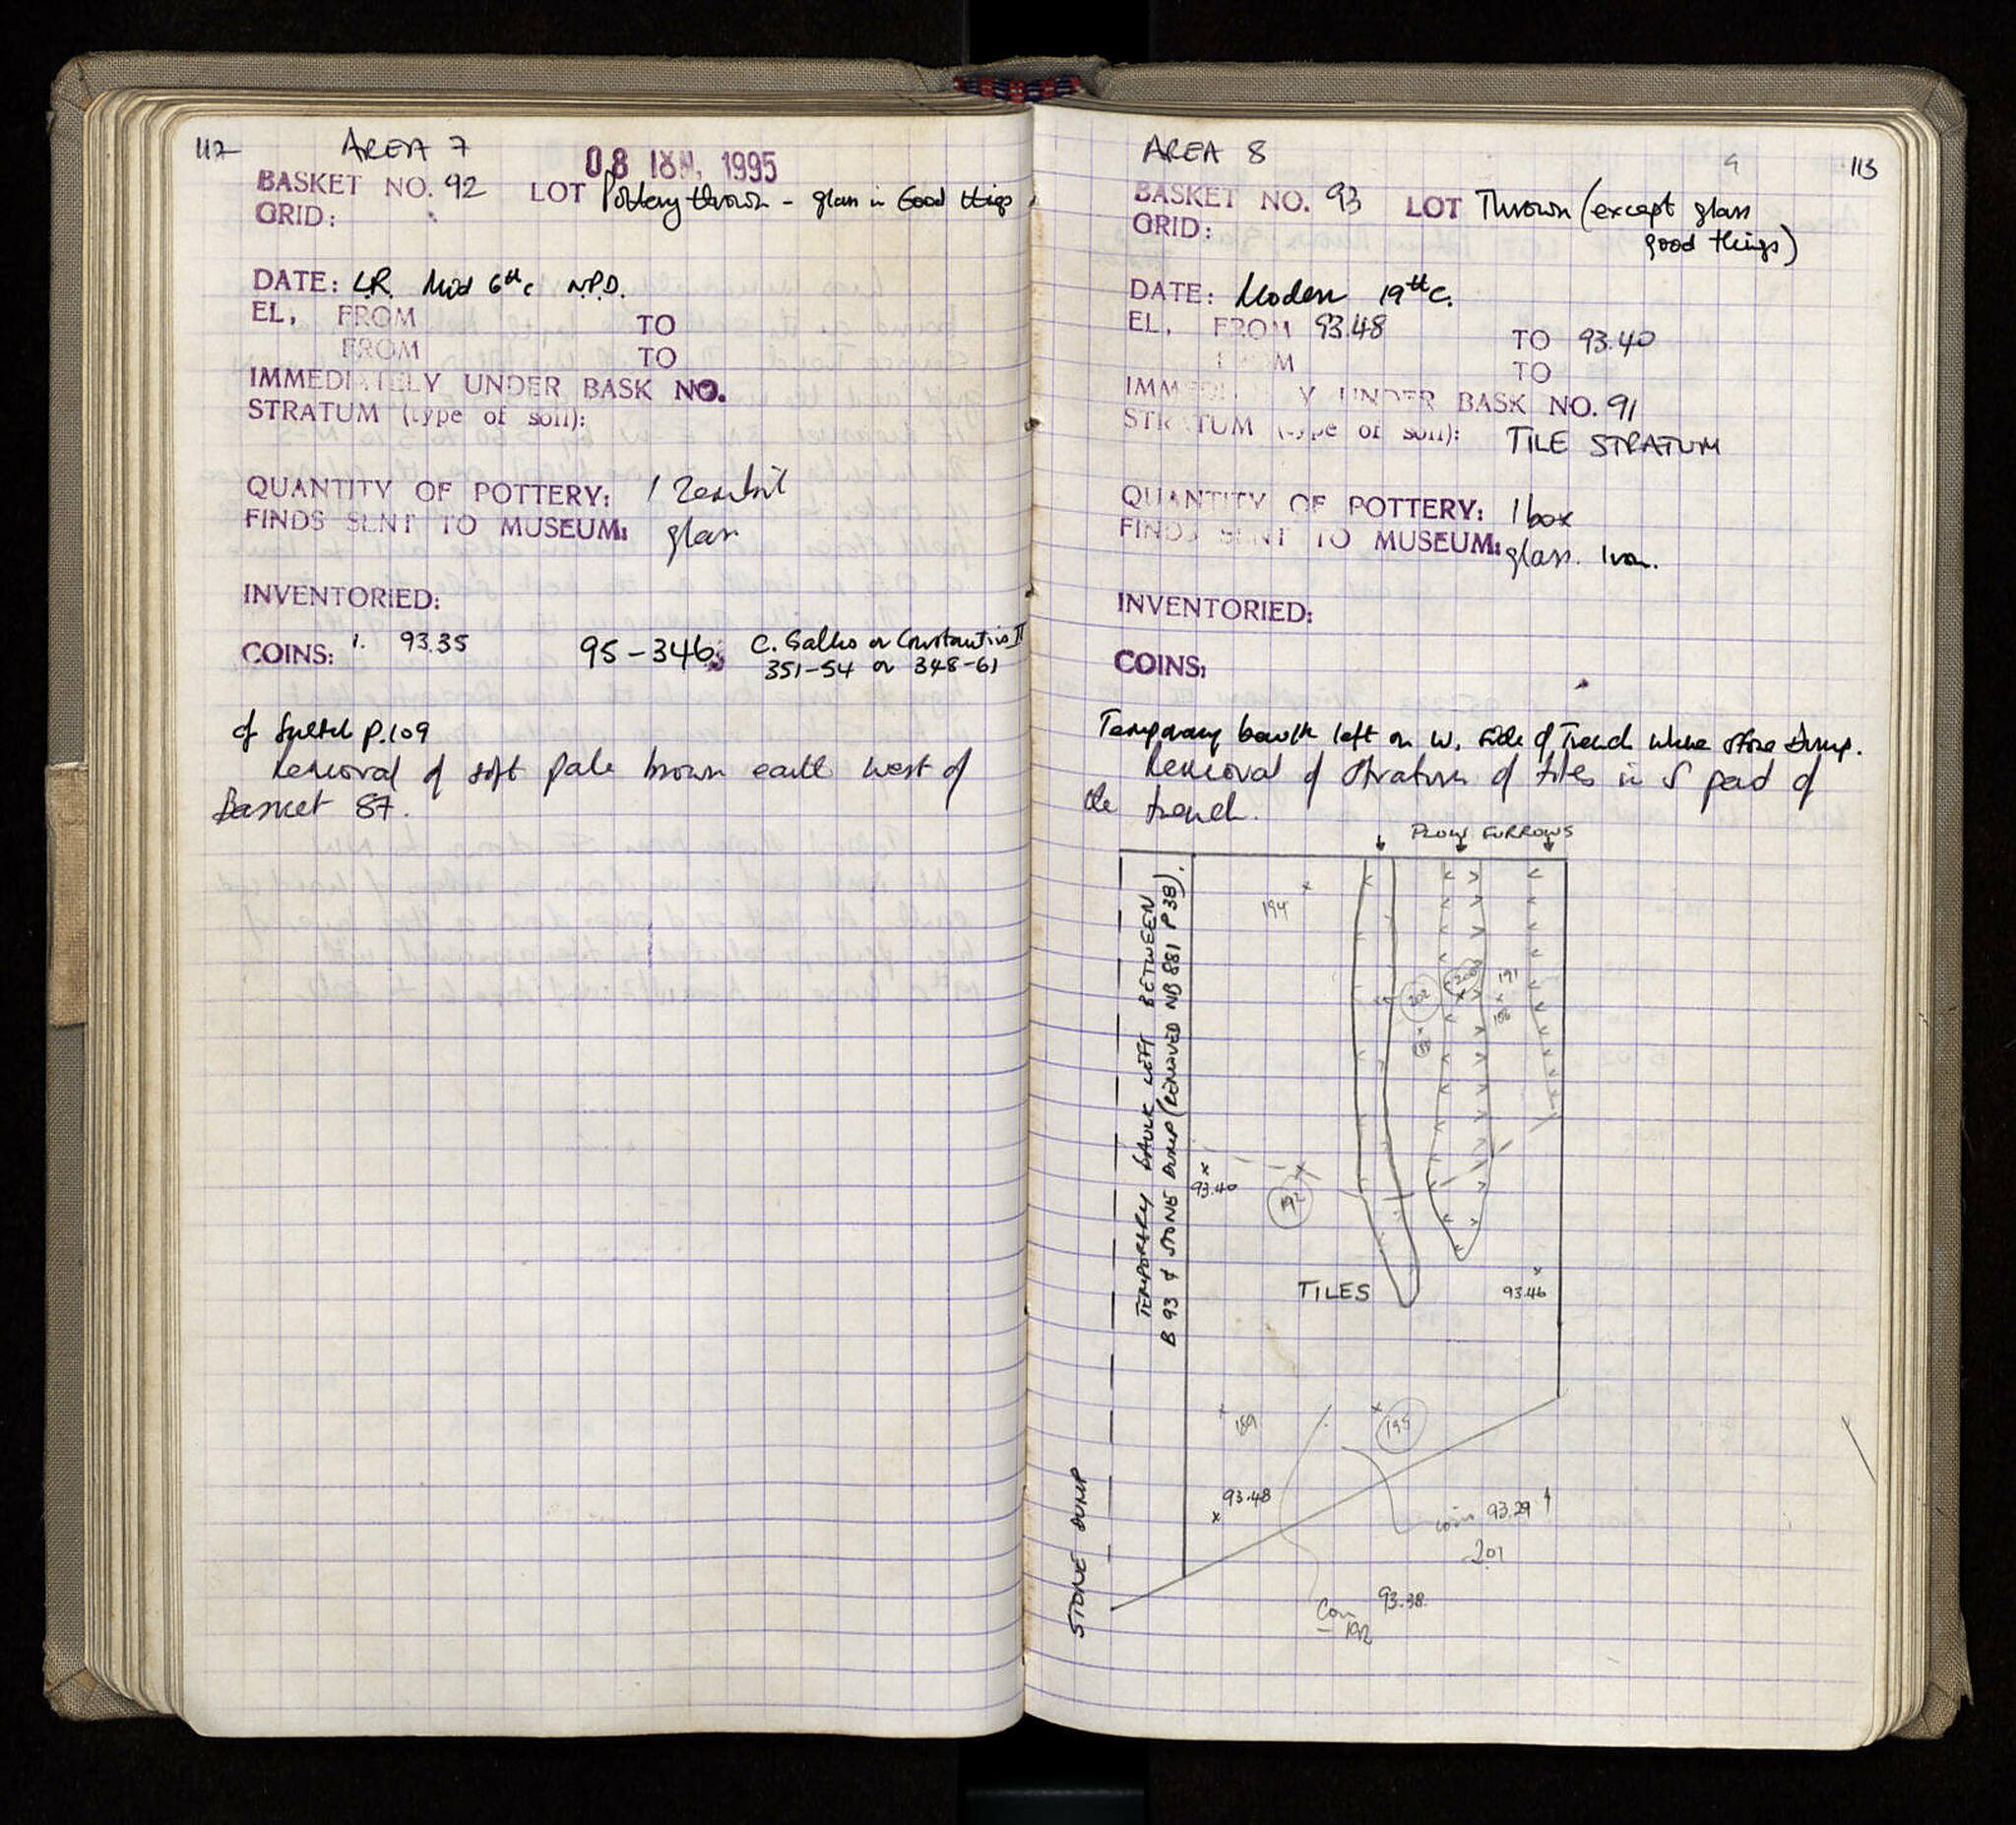 112 AREA 7
08 IUN. 1995
BASKET NO. 92 LOT Pottery thrown - glass in Good things
GRID:
DATE: L.R. Mid 6th c N.P.D.
EL, FROM TO
FROM TO
IMMEDIATELY UNDER BASK NO.
STRATUM (type of soil):
QUANTITY OF POTTERY: 1 Zembil
FINDS SENT TO MUSEUM: glass
INVENTORIED:
COINS: 1. 93.35 95-346 C. Gallus or Constantius II
351-54 or 348-61
cf sketch P.109
Removal of soft pale brown earth west of
Basket 87.
AREA 8 9 113
BASKET NO. 93 LOT Thrown (except glass
good things)
GRID:
DATE: Modern 19th C.
EL, FROM 93.48 TO 93.40
FROM TO
IMMEDIATELY UNDER BASK NO. 91
STRATUM (type of soil): TILE STRATUM
QUANTITY OF POTTERY: 1 box
FINDS SENT TO MUSEUM: glass. Iron.
INVENTORIED:
COINS:
Temporary baulk left on W. side of Trench where stone dump.
Removal of stratum of tiles in S part of
the trench.
PLOW FURROWS
TEMPORARY BAULK LEFT BETWEEN
B 93 & STONE DUMP (REMOVED NB 881 P 38).
194
202
200
191
186
93.40
192
TILES
93.46
189
195
93.48
coin 93.29
201
STONE DUMP
Coin 93.38
192